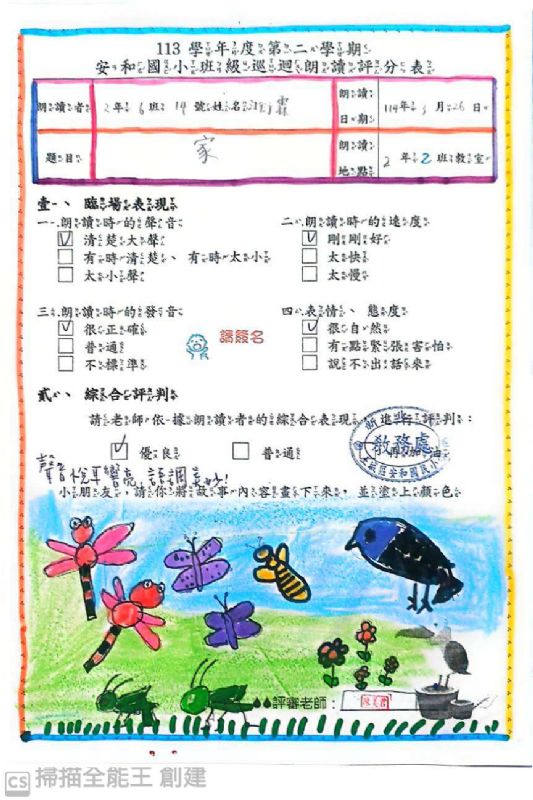 113 學年度第二學期
安和國小班級巡迴朗讀評分表
朗讀者 2年6班14號姓名 霖
朗讀日期 114年3月26日
題目 家
朗讀地點 2年2班教室
壹、臨場表現
一、朗讀時的聲音
清楚大聲
有時清楚、有時太小
太小聲
二、朗讀時的速度
剛剛好
太快
太慢
三、朗讀時的發音
很正確
普通
不標準
請簽名
四、表情、態度
很自然
有點緊張害怕
說不出話來
貳、綜合評判
請老師依據朗讀者的綜合表現進行評判：
優良
普通
再加油
教務處
聲音悅耳響亮,語調美妙!
小朋友，請你將故事內容畫下來，並塗上顏色
評審老師：
CS 掃描全能王 創建